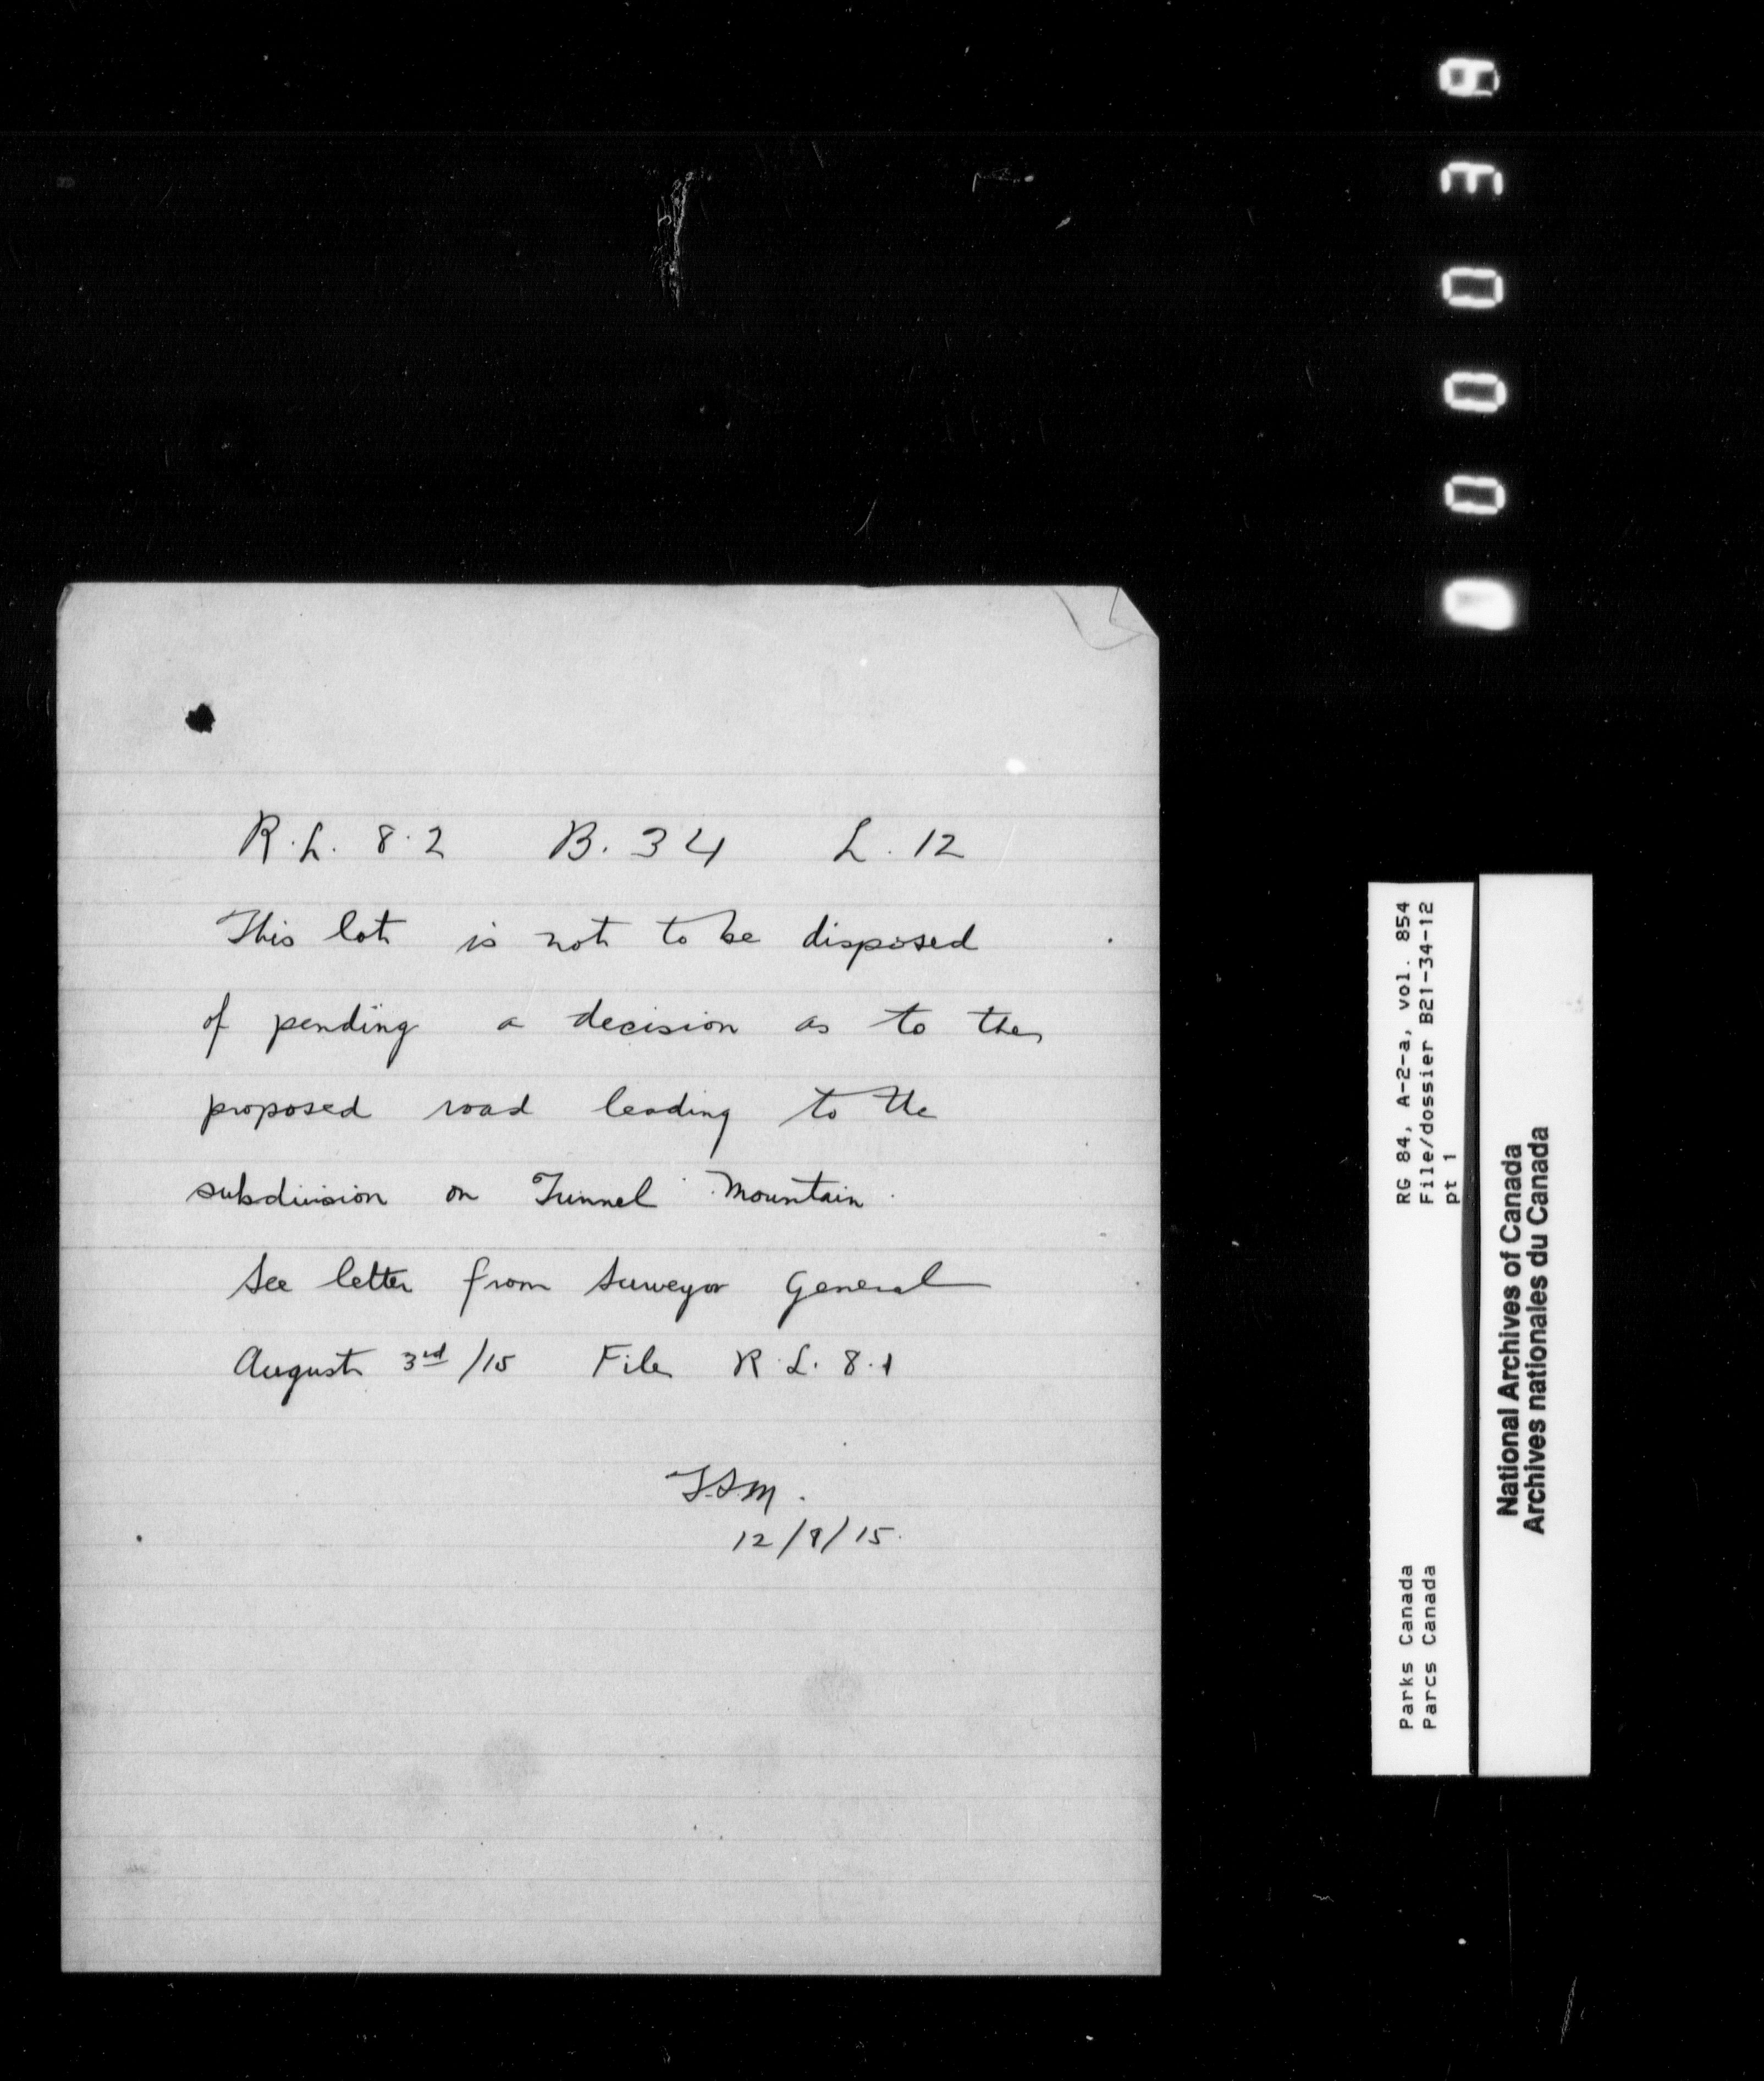 R.L. 8.2 B. 34 L. 12
This lot is not to be disposed
of pending a decision as to the
proposed road leading to the
subdivision on Tunnel Mountain.
See letter from Surveyor General
August 3rd/15 File R.L. 8.1
12/8/15.
RG 84, A-2-a, vol. 854
File/dossier B21-34-12
pt 1
Parks Canada
Parcs Canada
National Archives of Canada
Archives nationales du Canada